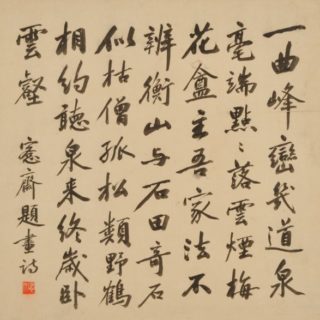 一曲峰巒幾道泉
毫端點點落雲煙梅
花盦主吾家法不
辨衡山与石田奇石
似枯僧孤松類野鶴
相約聽泉来終歲卧
雲壑 窓齋題畫詩